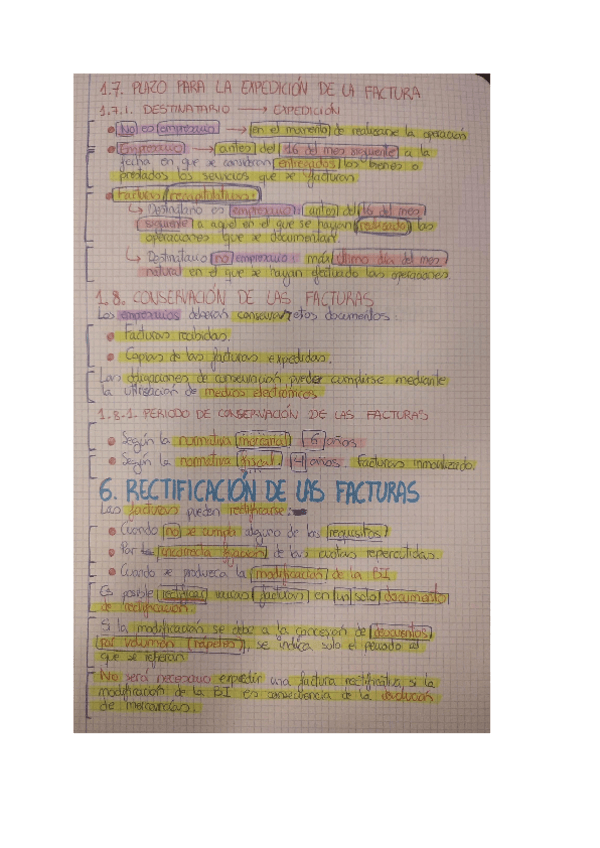 1.7. PLAZO PARA LA EXPEDICIÓN DE LA FACTURA
1.7.1. DESTINATARIO → EXPEDICIÓN
• No es empresario → en el momento de realizarse la operación
• Empresario → antes del 16 del mes siguiente a la
fecha en que se consideran entregados los bienes o
prestados los servicios que se facturan.
• Facturas recapitulativas:
↳ Destinatario es empresario: antes del 16 del mes
siguiente a aquel en el que se hayan realizado las
operaciones que se documentan.
↳ Destinatario no empresario: máx último día del mes
natural en el que se hayan efectuado las operaciones.
1.8. CONSERVACIÓN DE LAS FACTURAS
Los empresarios deberán conservar estos documentos:
• Facturas recibidas.
• Copias de las facturas expedidas.
Las obligaciones de conservación pueden cumplirse mediante
la utilización de medios electrónicos
1.8.1. PERIODO DE CONSERVACIÓN DE LAS FACTURAS
• Según la normativa mercantil: 6 años.
• Según la normativa fiscal: 4 años. Facturas inmovilizado.
6. RECTIFICACIÓN DE LAS FACTURAS
Las facturas pueden rectificarse:
• Cuando no se cumpla alguno de los requisitos.
• Por incorrecta fijación de las cuotas repercutidas.
• Cuando se produzca la modificación de la BI
Es posible rectificar varias facturas en un solo documento
de rectificación.
Si la modificación se debe a la concesión de descuentos
por volumen (rápeles), se indica solo el periodo al
que se refieran
No será necesario expedir una factura rectificativa si la
modificación de la BI es consecuencia de la devolución
de mercancías.